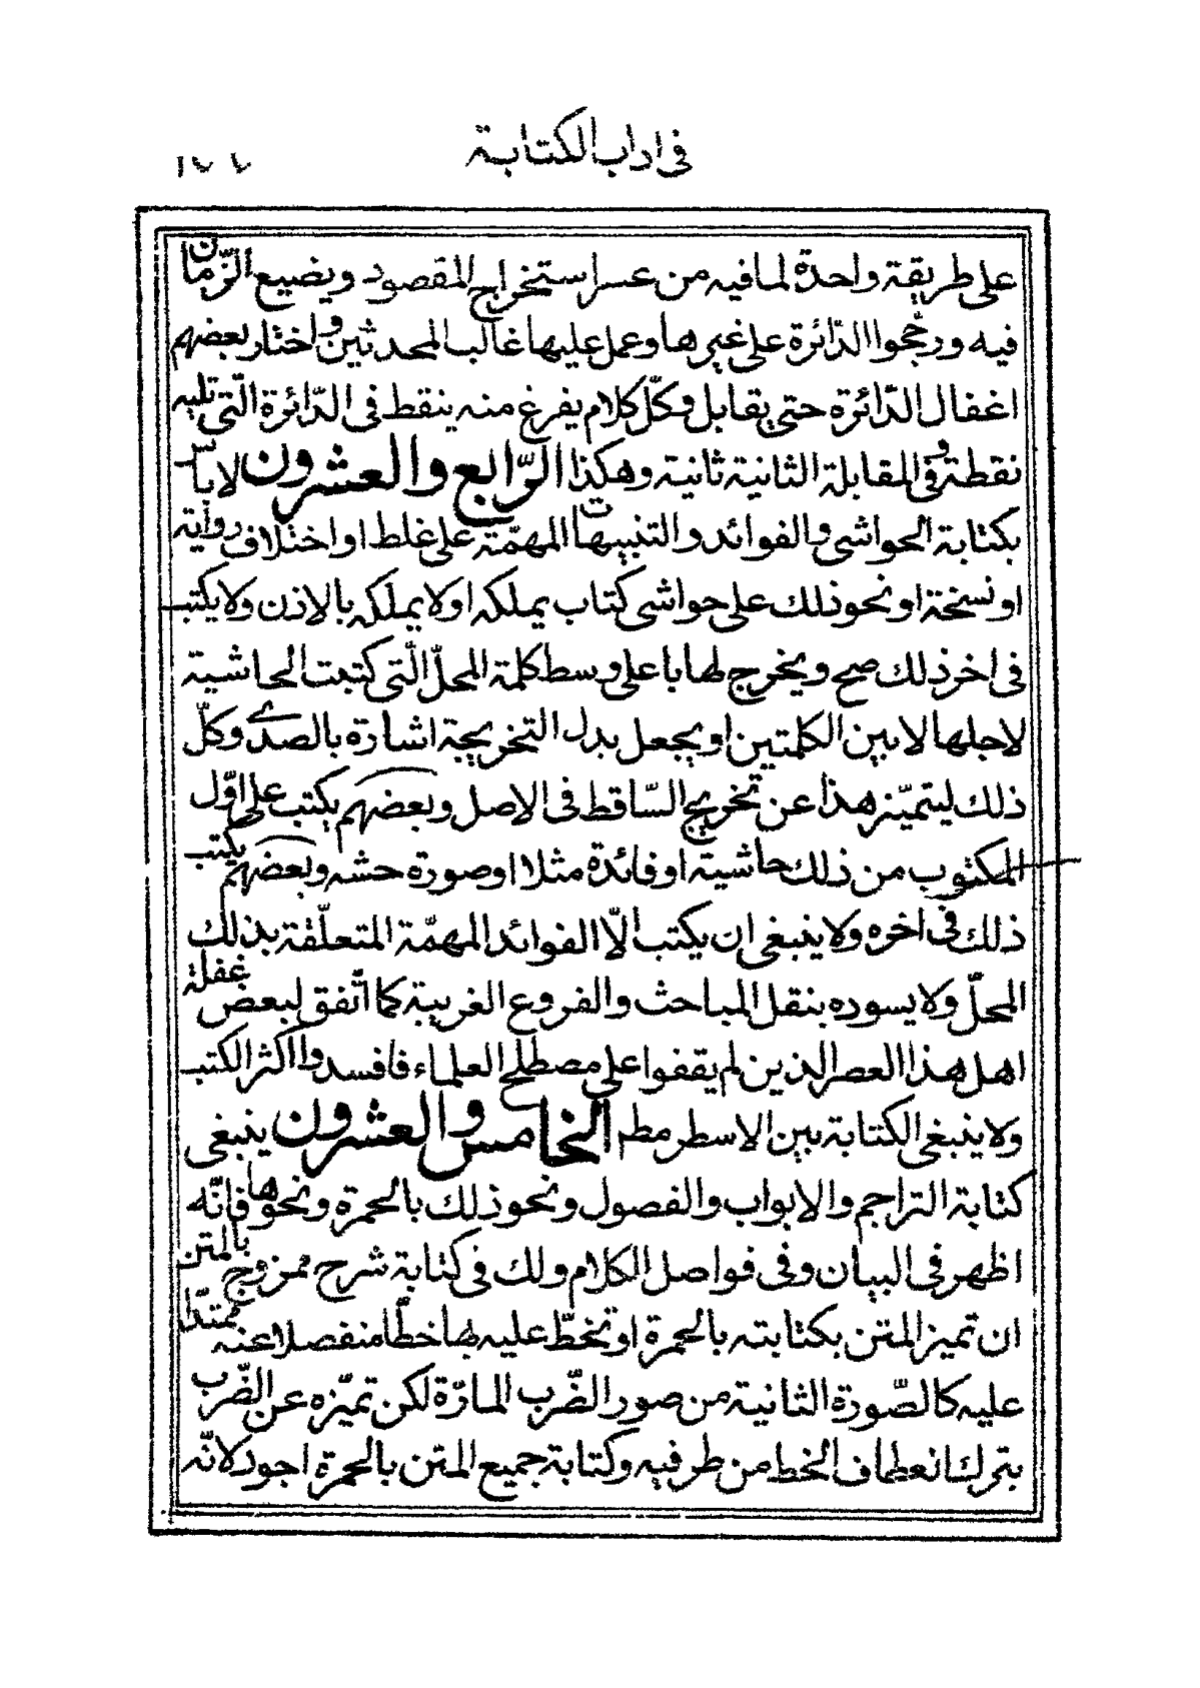 في اداب الكتابة
١٧٧
على طريقة واحدة لما فيه من عسر استخراج المقصود ويضيع الزّمان
فيه ورجّحوا الدّائرة على غيرها وعمل عليها غالب المحدثين واختار بعضهم
اغفال الدّائرة حتى يقابل وكلّ كلام يفرغ منه ينقط في الدّائرة الّتي تليه
نقطة وفي المقابلة الثانية ثانية وهكذا الرّابع والعشرون لا بأس
بكتابة الحواشي والفوائد والتنبيهات المهمّة على غلط او اختلاف رواية
او نسخة او نحو ذلك على حواشي كتاب يملكه او لا يملكه بالاذن ولا يكتب
في اخر ذلك صح ويخرج لها با على وسط كلمة المحلّ الّتي كتبت الحاشية
لاجلها لا بين الكلمتين او يجعل بدل التخريجة اشارة بالصدى وكلّ
ذلك ليتميّز هذا عن تخريج السّاقط في الاصل وبعضهم يكتب على اوّل
المكتوب من ذلك حاشية او فائدة مثلا او صورة حشه وبعضهم يكتب
ذلك في اخره ولا ينبغي ان يكتب الّا الفوائد المهمّة المتعلّقة بذلك
المحلّ ولا يسوده بنقل المباحث والفروع الغريبة كما اتّفق لبعض غفلة
اهل هذا العصر الذين لم يقفوا على مصطلح العلماء فافسدوا اكثر الكتب
ولا ينبغي الكتابة بين الاسطر مطم الخامس والعشرون ينبغي
كتابة التراجم والابواب والفصول ونحو ذلك بالحمرة ونحوها فانّه
اظهر في البيان وفي فواصل الكلام ولك في كتابة شرح ممزوج بالمتن
ان تميز المتن بكتابته بالحمرة او تخطّ عليه بها خطّا منفصلا عنه ممتدّا
عليه كالصّورة الثانية من صور الضّرب المارّة لكن تميّزه عن الضّرب
بترك انعطاف الخط من طرفيه وكتابة جميع المتن بالحمرة اجود لانّه